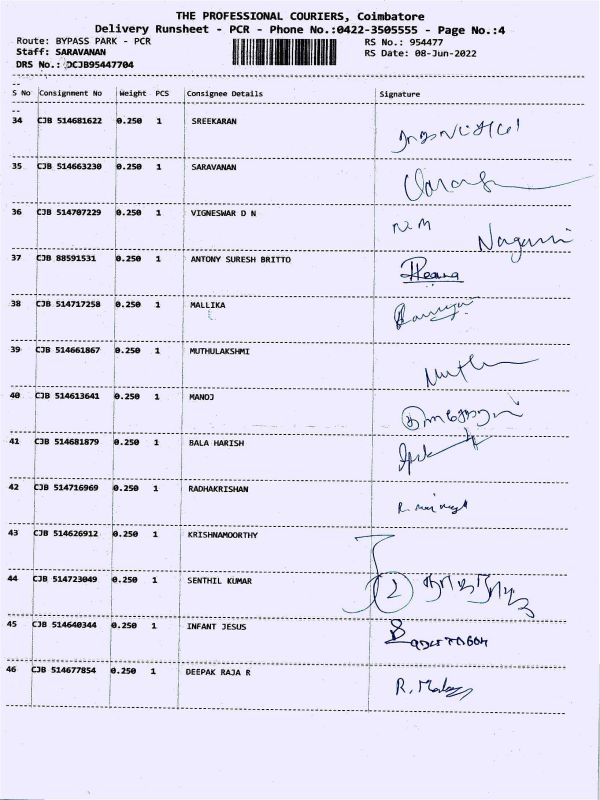 THE PROFESSIONAL COURIERS, Coimbatore
Delivery Runsheet - PCR - Phone No.:0422-3505555 - Page No.:4
Route: BYPASS PARK - PCR RS No.: 954477
Staff: SARAVANAN RS Date: 08-Jun-2022
DRS No.: DCJB95447704
S No Consignment No Weight PCS Consignee Details Signature
34 CJB 514681622 0.250 1 SREEKARAN
35 CJB 514663230 0.250 1 SARAVANAN
36 CJB 514707229 0.250 1 VIGNESWAR D N
37 CJB 88591531 0.250 1 ANTONY SURESH BRITTO
38 CJB 514717258 0.250 1 MALLIKA
39 CJB 514661867 0.250 1 MUTHULAKSHMI
40 CJB 514613641 0.250 1 MANOJ
41 CJB 514681879 0.250 1 BALA HARISH
42 CJB 514716969 0.250 1 RADHAKRISHAN
43 CJB 514626912 0.250 1 KRISHNAMOORTHY
44 CJB 514723049 0.250 1 SENTHIL KUMAR 2
45 CJB 514640344 0.250 1 INFANT JESUS
46 CJB 514677854 0.250 1 DEEPAK RAJA R